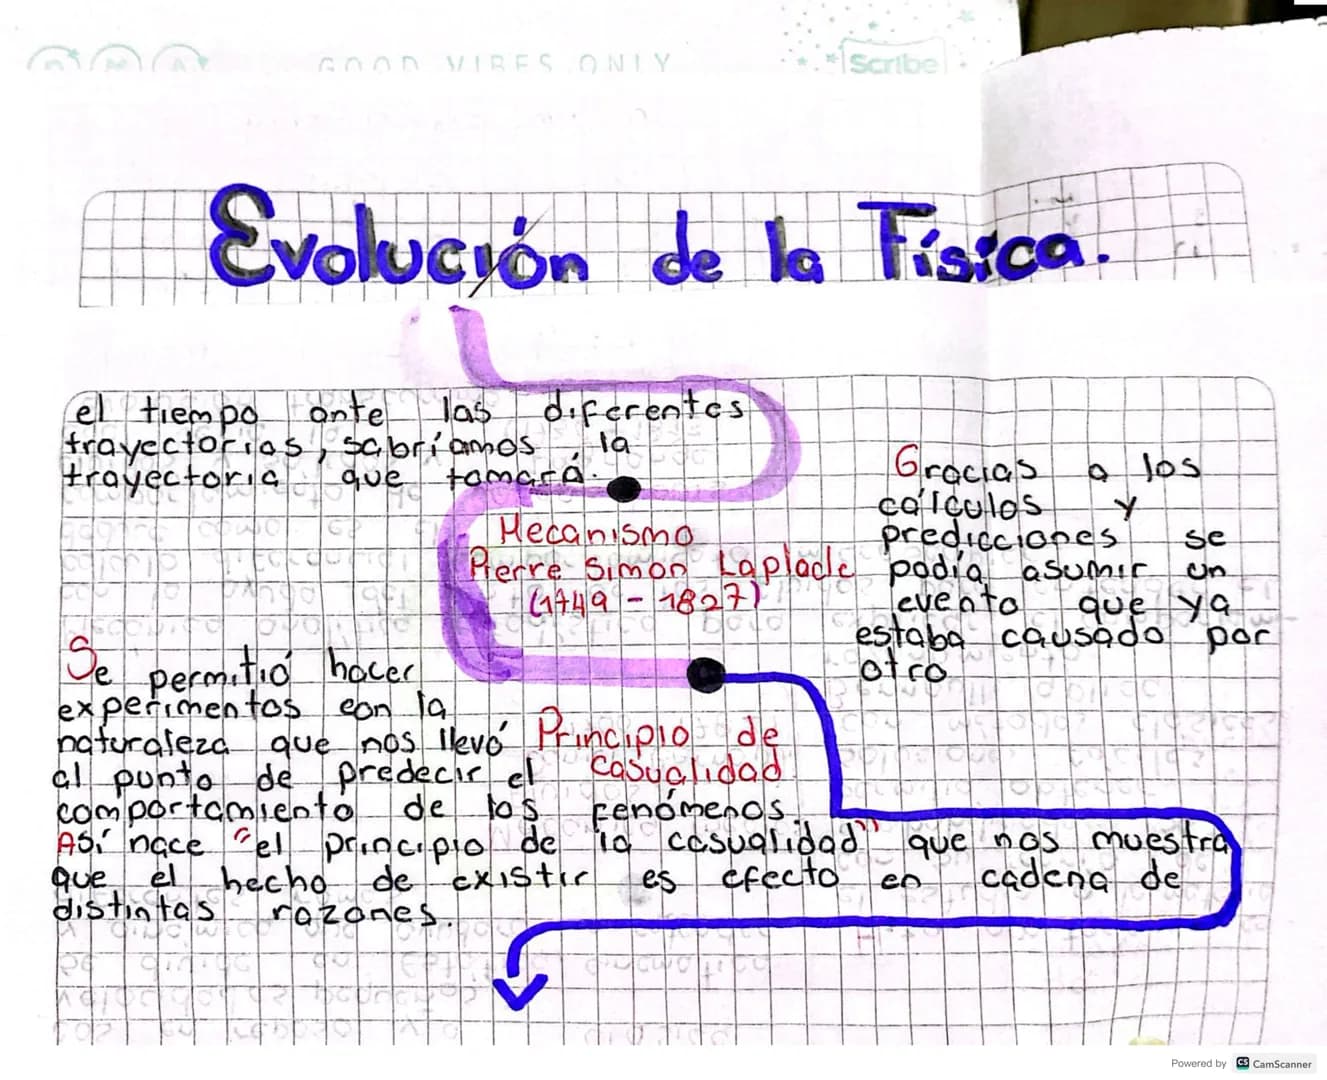 GOOD VIBES ONLY
Scribe
Evolución de la Física.
el tiempo ante las diferentes
trayectorias, sabríamos la
trayectoria que tomará.
Mecanismo
Pierre Simon Laplade
(1749 - 1827)
Gracias a los
cálculos y
predicciones se
podía asumir un
evento que ya
estaba causado por
otro
Se permitió hacer
experimentos con la
naturaleza que nos llevó
al punto de predecir el
comportamiento de los fenómenos.
Principio de
casualidad
Así nace "el principio de la casualidad" que nos muestra
que el hecho de existir es efecto en cadena de
distintas razones.
Powered by CS CamScanner